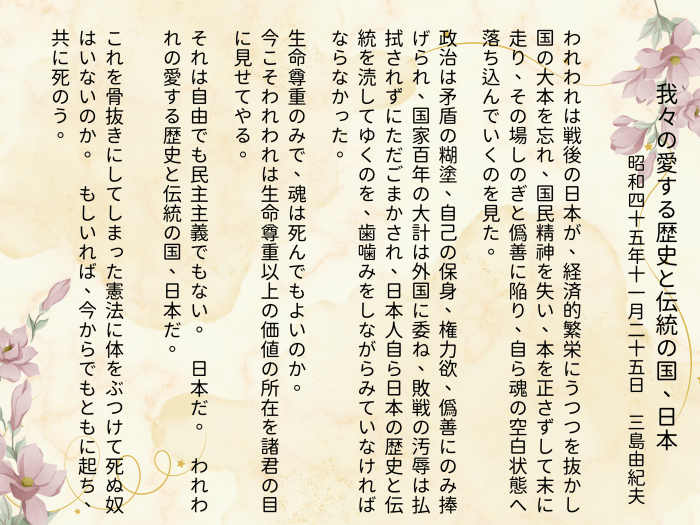 我々の愛する歴史と伝統の国、日本
昭和四十五年十一月二十五日　三島由紀夫
われわれは戦後の日本が、経済的繁栄にうつつを抜かし
国の大本を忘れ、国民精神を失い、本を正さずして末に
走り、その場しのぎと僞善に陥り、自ら魂の空白状態へ
落ち込んでいくのを見た。
政治は矛盾の糊塗、自己の保身、権力欲、僞善にのみ捧
げられ、国家百年の大計は外国に委ね、敗戦の汚辱は払
拭されずにただごまかされ、日本人自ら日本の歴史と伝
統を涜してゆくのを、歯噛みをしながらみていなければ
ならなかった。
生命尊重のみで、魂は死んでもよいのか。
今こそわれわれは生命尊重以上の価値の所在を諸君の目
に見せてやる。
それは自由でも民主主義でもない。　日本だ。　われわ
れの愛する歴史と伝統の国、日本だ。
これを骨抜きにしてしまった憲法に体をぶつけて死ぬ奴
はいないのか。　もしいれば、今からでもともに起ち、
共に死のう。